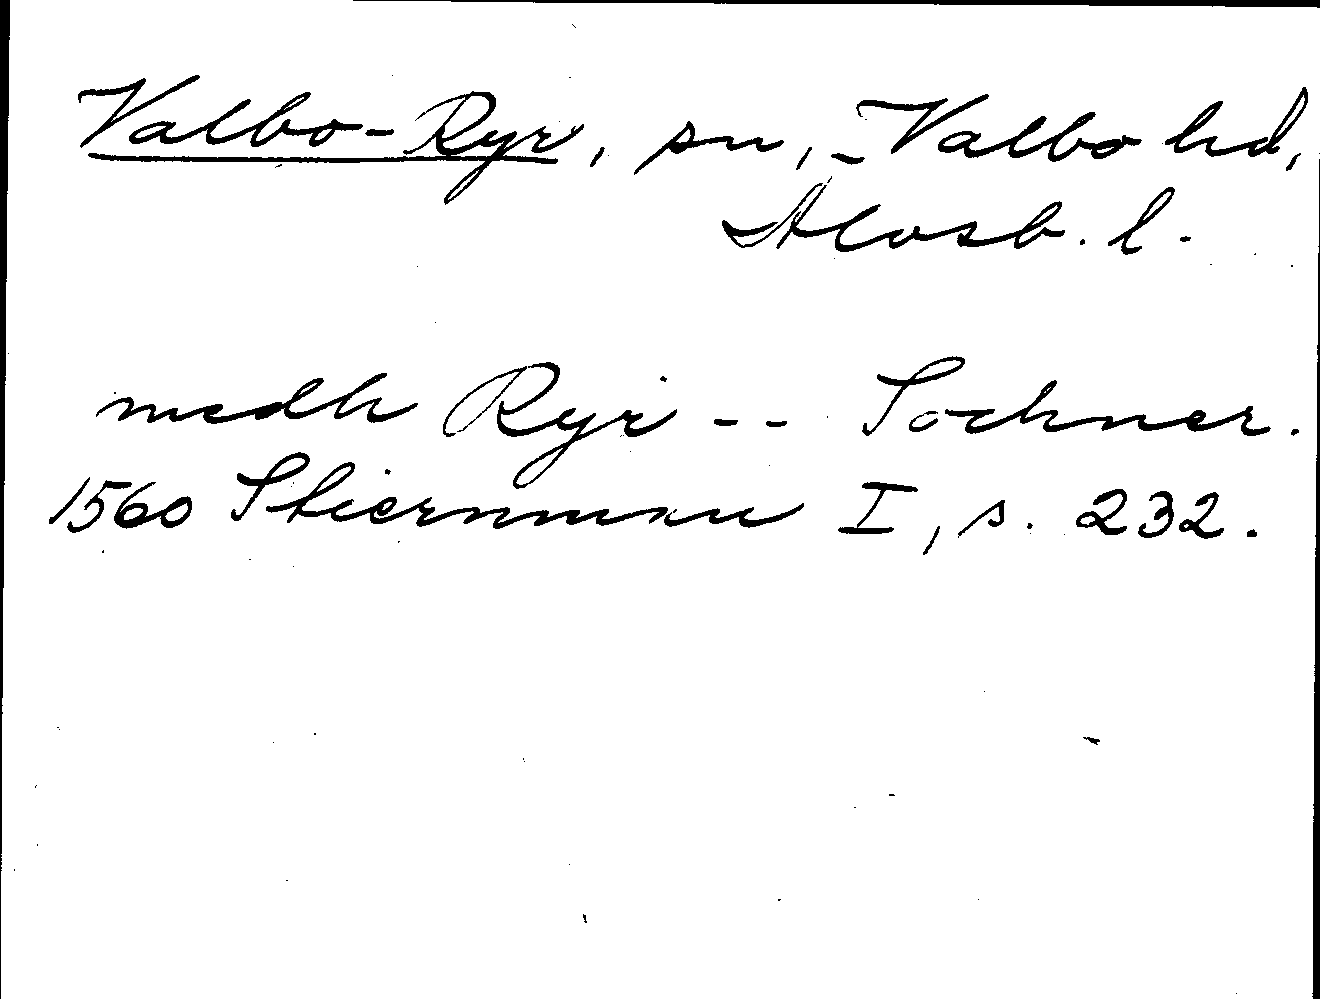 Valbo-Ryr, sn, Valbo hd,
Älvsb. l.
medh Ryr -- Sochner.
1560 Stiernman I, s. 232.